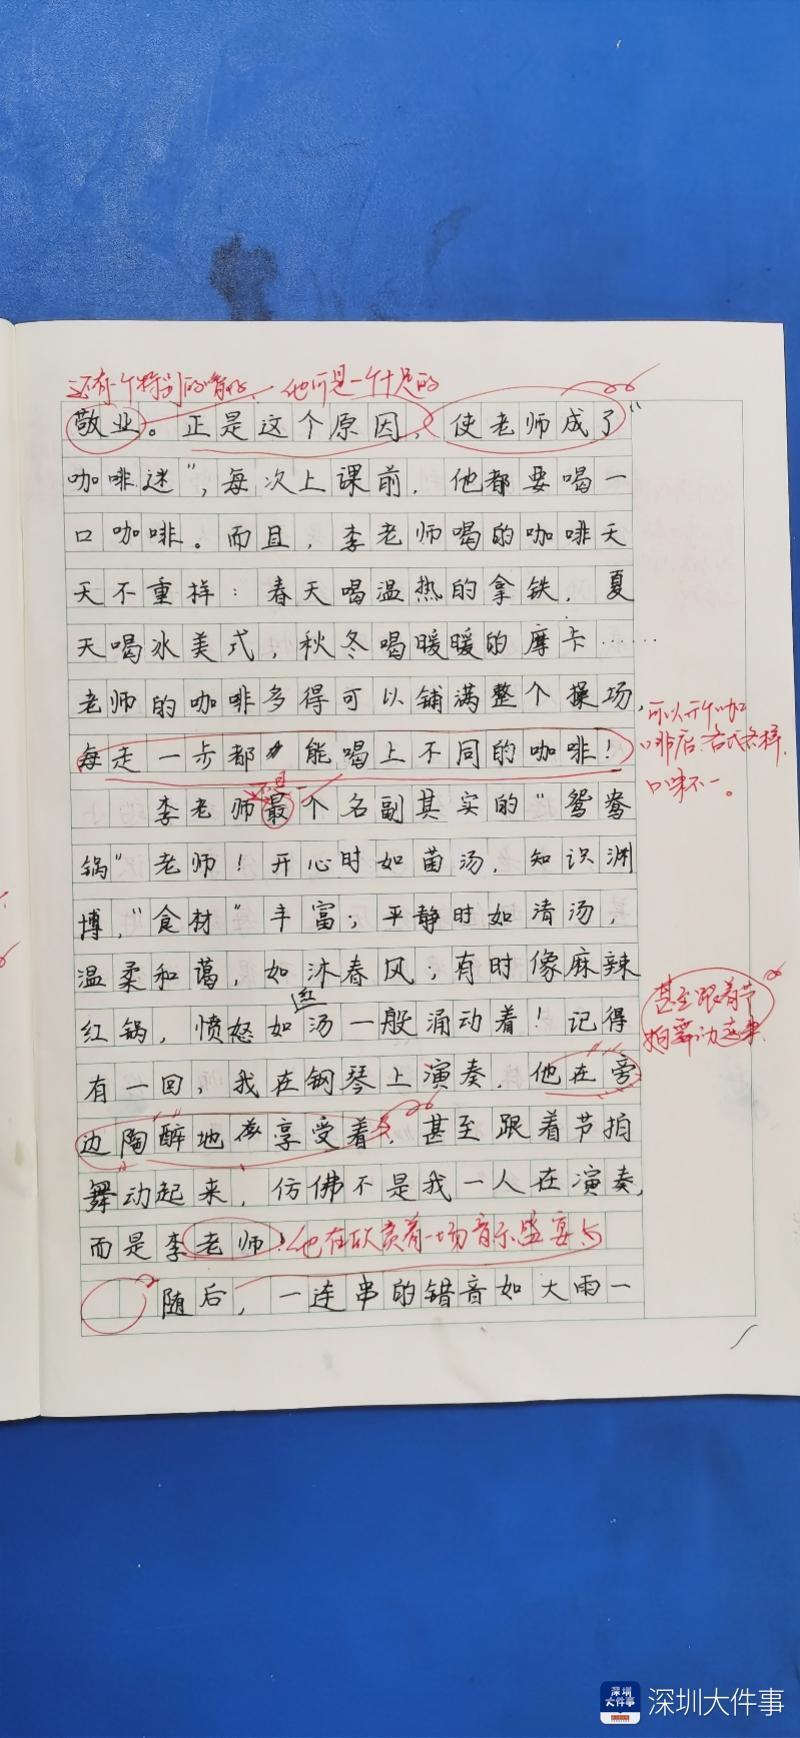 还有一个特别的嗜好,他可是一个十足的
敬业。正是这个原因,使老师成了“
咖啡迷”,每次上课前,他都要喝一
口咖啡。而且,李老师喝的咖啡天
天不重样:春天喝温热的拿铁,夏
天喝冰美式,秋冬喝暖暖的摩卡……
老师的咖啡多得可以铺满整个操场,
可以开个咖
每走一步都能喝上不同的咖啡!
啡店,各式各样,
口味不一。
还是
李老师最个名副其实的“鸳鸯
锅”老师!开心时如菌汤,知识渊
博,“食材”丰富;平静时如清汤,
温柔和蔼,如沐春风;有时像麻辣
红
红锅,愤怒如汤一般涌动着!记得
甚至跟着节
拍舞动起来
有一回,我在钢琴上演奏,他在旁
边陶醉地享受着,甚至跟着节拍
舞动起来,仿佛不是我一人在演奏,
而是李老师!他在欣赏着一场音乐盛宴
随后,一连串的错音如大雨一
深圳
大件事
深圳大件事